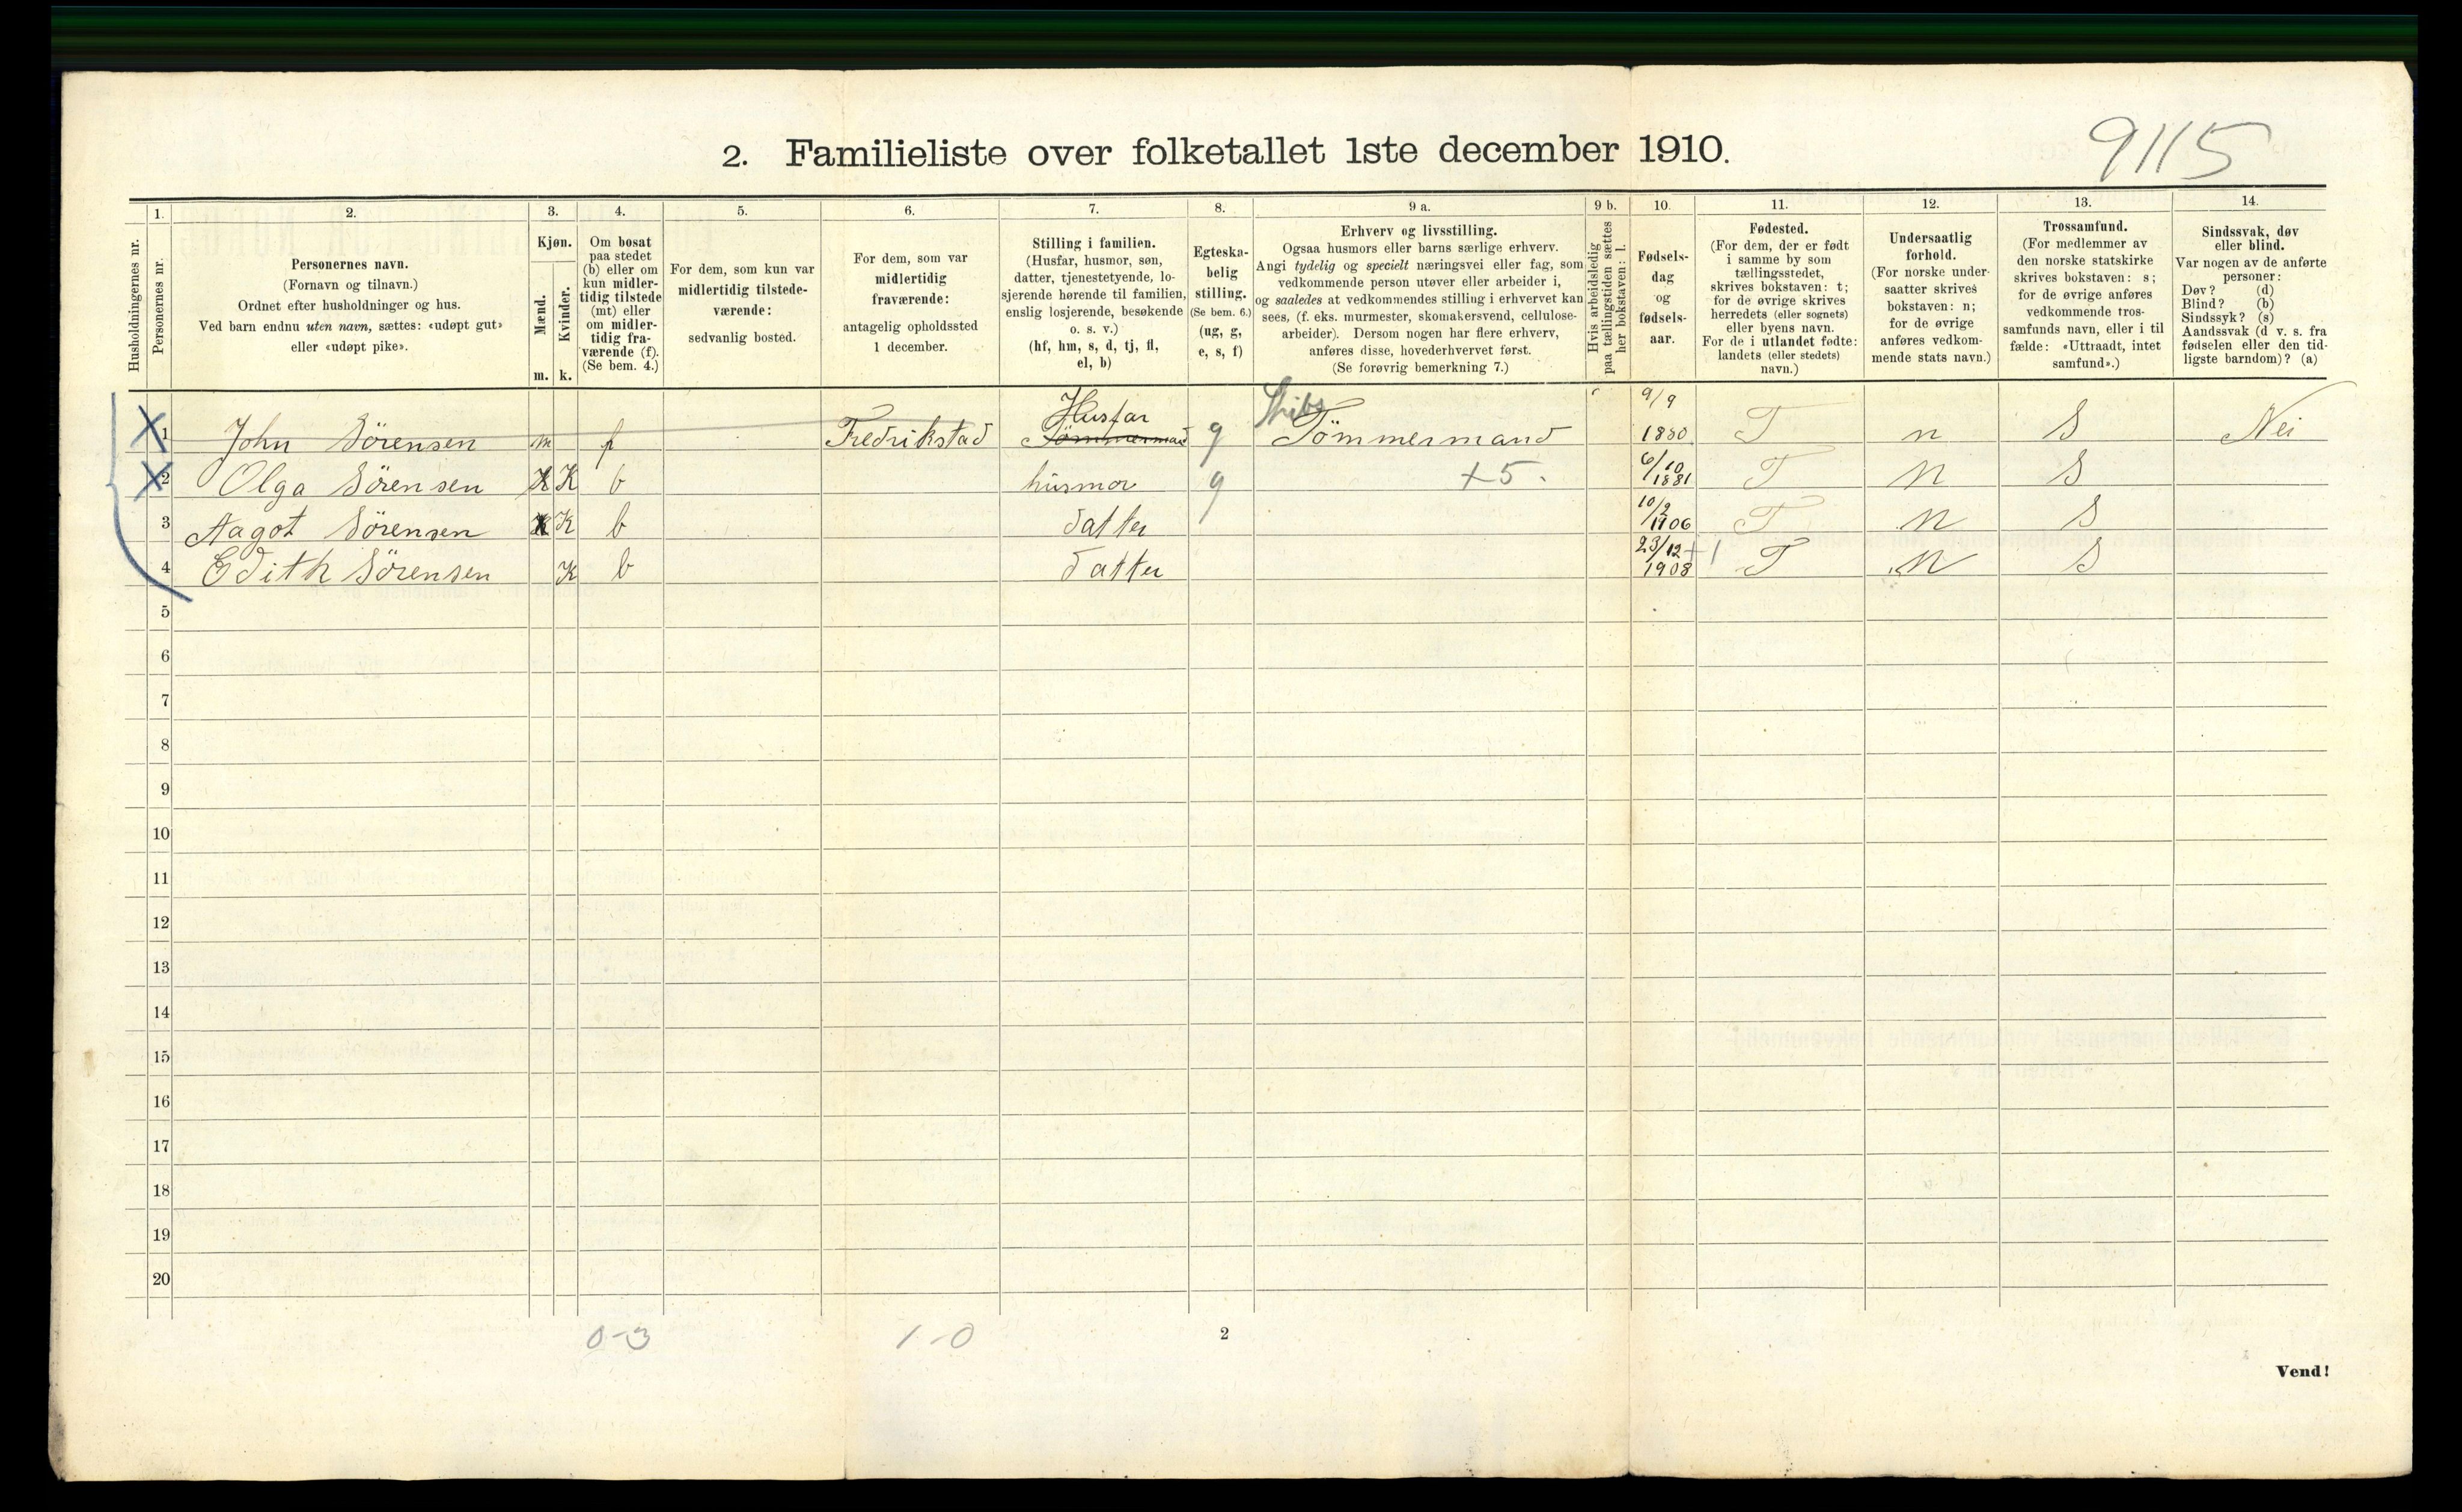 9115
2. Familieliste over folketallet 1ste december 1910.
1. 2. 3. 4. 5. 6. 7. 8. 9 a. 9 b. 10. 11. 12. 13. 14.
Husholdningernes nr.
Personernes nr.
Personernes navn.
(Fornavn og tilnavn.)
Ordnet efter husholdninger og hus.
Ved barn endnu uten navn, sættes: «udøpt gut»
eller «udøpt pike».
Kjøn.
Mænd.
Kvinder.
m. k.
Om bosat
paa stedet
(b) eller om
kun midler-
tidig tilstede
(mt) eller
om midler-
tidig fra-
værende (f).
(Se bem. 4.)
For dem, som kun var
midlertidig tilstede-
værende:
sedvanlig bosted.
For dem, som var
midlertidig
fraværende:
antagelig opholdssted
1 december.
Stilling i familien.
(Husfar, husmor, søn,
datter, tjenestetyende, lo-
sjerende hørende til familien,
enslig losjerende, besøkende
o. s. v.)
(hf, hm, s, d, tj, fl,
el, b)
Egteska-
belig
stilling.
(Se bem. 6.)
(ug, g,
e, s, f)
Erhverv og livsstilling.
Ogsaa husmors eller barns særlige erhverv.
Angi tydelig og specielt næringsvei eller fag, som
vedkommende person utøver eller arbeider i,
og saaledes at vedkommendes stilling i erhvervet kan
sees, (f. eks. murmester, skomakersvend, cellulose-
arbeider). Dersom nogen har flere erhverv,
anføres disse, hovederhvervet først.
(Se forøvrig bemerkning 7.)
Hvis arbeidsledig
paa tællingstiden sættes
her bokstaven: l.
Fødsels-
dag
og
fødsels-
aar.
Fødested.
(For dem, der er født
i samme by som
tællingsstedet,
skrives bokstaven: t;
for de øvrige skrives
herredets (eller sognets)
eller byens navn.
For de i utlandet fødte:
landets (eller stedets)
navn.)
Undersaatlig
forhold.
(For norske under-
saatter skrives
bokstaven: n;
for de øvrige
anføres vedkom-
mende stats navn.)
Trossamfund.
(For medlemmer av
den norske statskirke
skrives bokstaven: s;
for de øvrige anføres
vedkommende tros-
samfunds navn, eller i til
fælde: «Uttraadt, intet
samfund».)
Sindssvak, døv
eller blind.
Var nogen av de anførte
personer:
Døv? (d)
Blind? (b)
Sindssyk? (s)
Aandssvak (d v. s. fra
fødselen eller den tid-
ligste barndom)? (a)
Husfar Skibs 9/9
1 John Sörensen m f Fredrikstad Tömmermand g Tömmermand 1880 T n S Nei
2 Olga Sörensen K K b husmor g +5. 6/10 1881 T n S
3 Aagot Sörensen K K b datter 10/2 1906 T n S
4 Edith Sörensen K b datter 23/12 1908 +1 T n S
5
6
7
8
9
10
11
12
13
14
15
16
17
18
19
20
0-3 1-0 2
Vend!